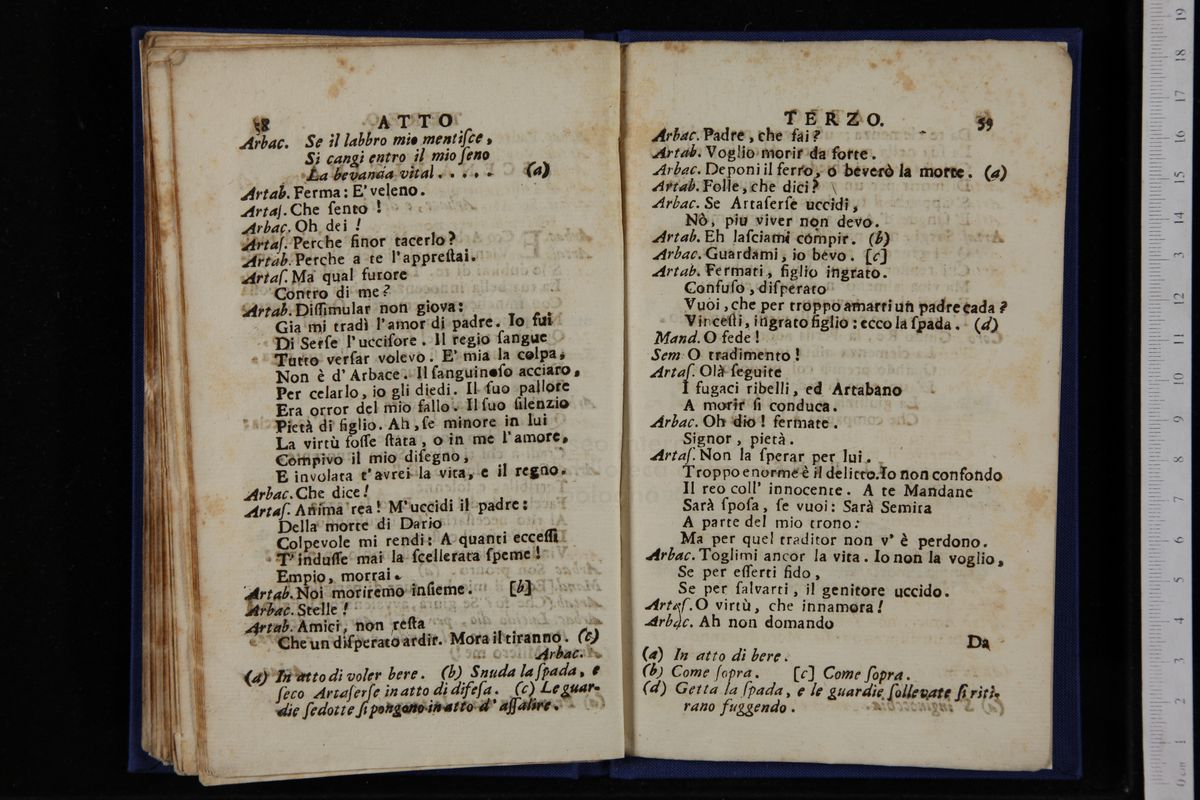 58 ATTO
Arbac. Se il labbro mio mentiſce,
Si cangi entro il mio ſeno
La bevanda vital . . . . . (a)
Artab. Ferma: E' veleno.
Artaſ. Che ſento !
Arbac. Oh dei !
Artaſ. Perche finor tacerlo?
Artab. Perche a te l'appreſtai.
Artaſ. Ma qual furore
Contro di me?
Artab. Diſſimular non giova:
Gia mi tradì l'amor di padre. Io fui
Di Serſe l'ucciſore. Il regio ſangue
Tutto verſar volevo. E' mia la colpa,
Non è d'Arbace. Il ſanguinoſo acciaro,
Per celarlo, io gli diedi. Il ſuo pallore
Era orror del mio fallo. Il ſuo ſilenzio
Pietà di figlio. Ah, ſe minore in lui
La virtù foſſe ſtata, o in me l'amore,
Compivo il mio diſegno,
E involata t'avrei la vita, e il regno.
Arbac. Che dice!
Artaſ. Anima rea! M'uccidi il padre:
Della morte di Dario
Colpevole mi rendi: A quanti ecceſſi
T'induſſe mai la ſcellerata ſpeme!
Empio, morrai.
Artab. Noi moriremo inſieme. [b]
Arbac. Stelle!
Artab. Amici, non reſta
Che un diſperato ardir. Mora il tiranno. (c)
Arbac.
(a) In atto di voler bere. (b) Snuda la ſpada, e
ſeco Artaſerſe in atto di difeſa. (c) Le guar-
die ſedotte ſi pongono in atto d'aſſalire.
TERZO. 59
Arbac. Padre, che fai?
Artab. Voglio morir da forte.
Arbac. Deponi il ferro, o beverò la morte. (a)
Artab. Folle, che dici?
Arbac. Se Artaſerſe uccidi,
Nò, piu viver non devo.
Artab. Eh laſciami compir. (b)
Arbac. Guardami, io bevo. [c]
Artab. Fermati, figlio ingrato.
Confuſo, diſperato
Vuoi, che per troppo amarti un padre cada?
Vinceſti, ingrato figlio: ecco la ſpada. (d)
Mand. O fede!
Sem O tradimento!
Artaſ. Olà ſeguite
I fugaci ribelli, ed Artabano
A morir ſi conduca.
Arbac. Oh dio! fermate.
Signor, pietà.
Artaſ. Non la ſperar per lui.
Troppo enorme è il delitto. Io non confondo
Il reo coll' innocente. A te Mandane
Sarà ſpoſa, ſe vuoi: Sarà Semira
A parte del mio trono:
Ma per quel traditor non v'è perdono.
Arbac. Toglimi ancor la vita. Io non la voglio,
Se per eſſerti fido,
Se per ſalvarti, il genitore uccido.
Artaſ. O virtù, che innamora!
Arbac. Ah non domando
Da
(a) In atto di bere.
(b) Come ſopra. [c] Come ſopra.
(d) Getta la ſpada, e le guardie ſollevate ſi riti-
rano fuggendo.